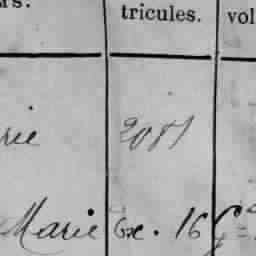 rs. tricules. vol
rie 2081
Marie Ex. 16